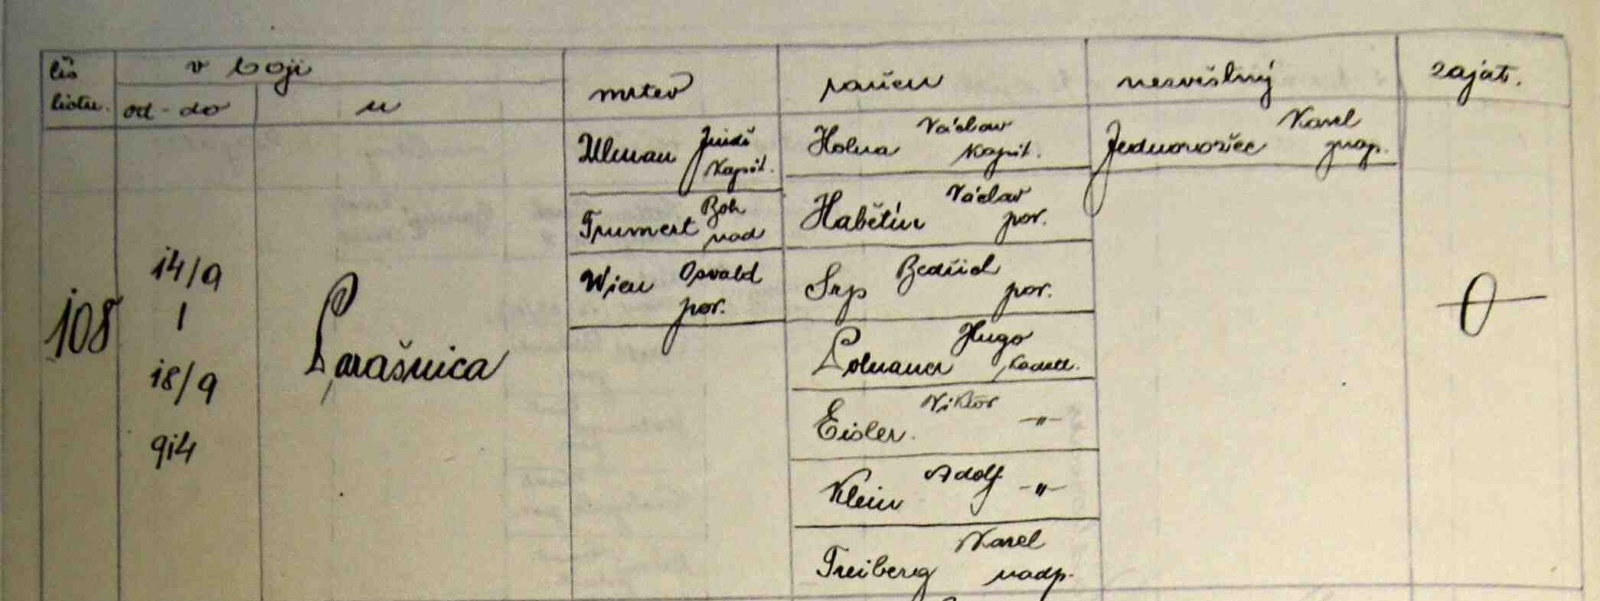 čís v boji mrtev raněn nezvěstný zajat.
listu. od - do u
Ulman Jindř Kapit. Holna Václav Kapit. Jednorožec Karel prap.
Trumert Boh nad Habětín Václav por.
14/9 Wien Osvald por. Srp Bedřich por.
108 | Parašnica Hugo kadet. 0
18/9 Eisler. Viktor -"-
914 Klein Adolf -"-
Freiberg Karel nadp.